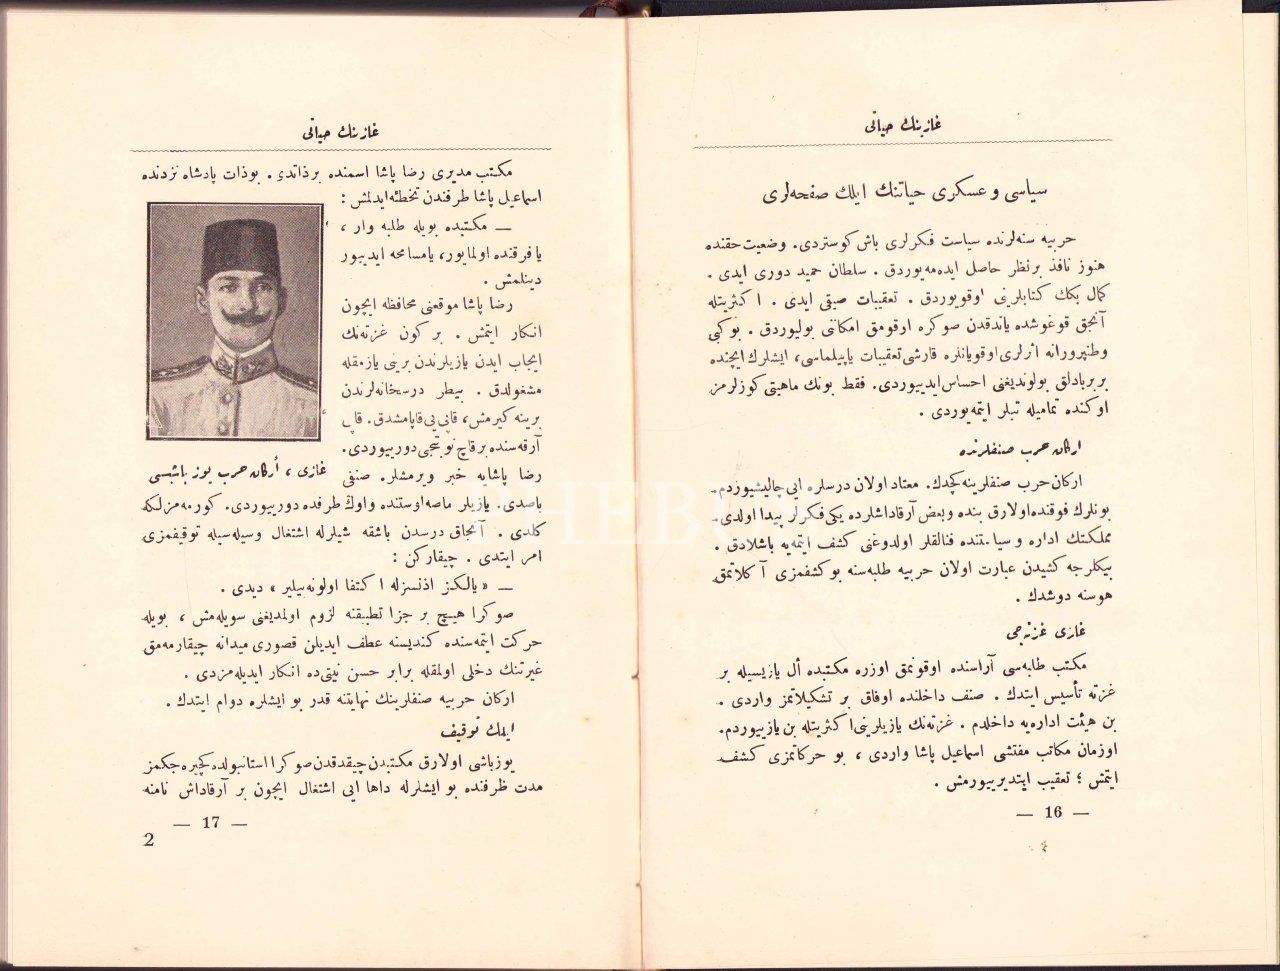 غازینك حیاتی
سیاسی و عسكری حیاتنك ایلك صفحه‌لری
حربیه سنه‌لرنده سیاست فكرلری باش كوستردی. وضعیت حقنده
هنوز نافذ برنظر حاصل ایده‌مه‌یوردق . سلطان حمید دوری ایدی .
كمال بكك كتابلرینی اوقویوردق . تعقیبات صیقی ایدی . اكثریتله
آنجق قوغوشده یاتدقدن صوكره اوقومق امكانی بولیوردق . بوكبی
وطنپرورانه اثرلری اوقویانلره قارشی تعقیبات یاپیلماسی، ایشلرك ایچنده
بربربادلق بولوندیغنی احساس ایدییوردی. فقط بونك ماهیتی كوزلرمز
اوكنده تمامیله تبلر ایتمه‌یوردی .
اركان حرب صنفلرنده
اركان حرب صنفلرینه كچدك. معتاد اولان درسلره ایی چالیشیوردم.
بونلرك فوقنده اولارق بنده وبعض آرقاداشلرده یكی فكرلر پیدا اولدی.
مملكتك اداره و سیاستنده فنالقلر اولدوغنی كشف ایتمه‌یه باشلادق .
بیكلرجه كشیدن عبارت اولان حربیه طلبه‌سنه بو كشفمزی آكلاتمق
هوسنه دوشدك .
غازی غزته‌جی
مكتب طلبه‌سی آراسنده اوقونمق اوزره مكتبده أل یازیسیله بر
غزته تأسیس ایتدك . صنف داخلنده اوفاق بر تشكیلاتمز واردی .
بن هیئت اداره‌یه داخلدم . غزته‌نك یازیلرینی اكثریتله بن یازییوردم.
اوزمان مكاتب مفتشی اسماعیل پاشا واردی ، بو حركاتمزی كشف
ایتمش ؛ تعقیب ایتدیرییورمش .
— 16 —
غازینك حیاتی
مكتب مدیری رضا پاشا اسمنده برذاتدی . بوذات پادشاه نزدنده
اسماعیل پاشا طرفندن تخطئه ایدلمش :
— مكتبده بویله طلبه وار ،
یا فرقنده اولمایور، یامسامحه ایدییور
دینلمش .
رضا پاشا موقعنی محافظه ایچون
انكار ایتمش . بر كون غزته‌نك
ایجاب ایدن یازیلرندن برینی یازمقله
مشغولدق . بیطر درسخانه‌لرندن
برینه كیرمش، قاپی‌یی قاپامشدق. قاپی
آرقه‌سنده برقاچ نوبتجی دورییوردی.
رضا پاشایه خبر ویرمشلر. صنفی
غازی ، أركان حرب یوز باشیسی
باصدی. یازیلر ماصه اوستنده واوك طرفده دورییوردی. كورمه‌مزلكه
كلدی . آنجاق درسدن باشقه شیلرله اشتغال وسیله‌سیله توقیفمزی
امر ایتدی . چیقاركن :
— « یالكز اذنسزله اكتفا اولونه‌بیلیر » دیدی .
صوكرا هیچ بر جزا تطبیقنه لزوم اولمدیغنی سویله‌مش ، بویله
حركت ایتمه‌سنده كندیسنه عطف ایدیلن قصوری میدانه چیقارمه‌مق
غیرتنك دخلی اولمقله برابر حسن نیتی‌ده انكار ایدیله‌مزدی .
اركان حربیه صنفلرینك نهایتنه قدر بو ایشلره دوام ایتدك .
ایلك توقیف
یوزباشی اولارق مكتبدن چیقدقدن صوكرا استانبولده كچیره‌جكمز
مدت ظرفنده بو ایشلرله داها ایی اشتغال ایچون بر آرقاداش نامنه
— 17 —
2